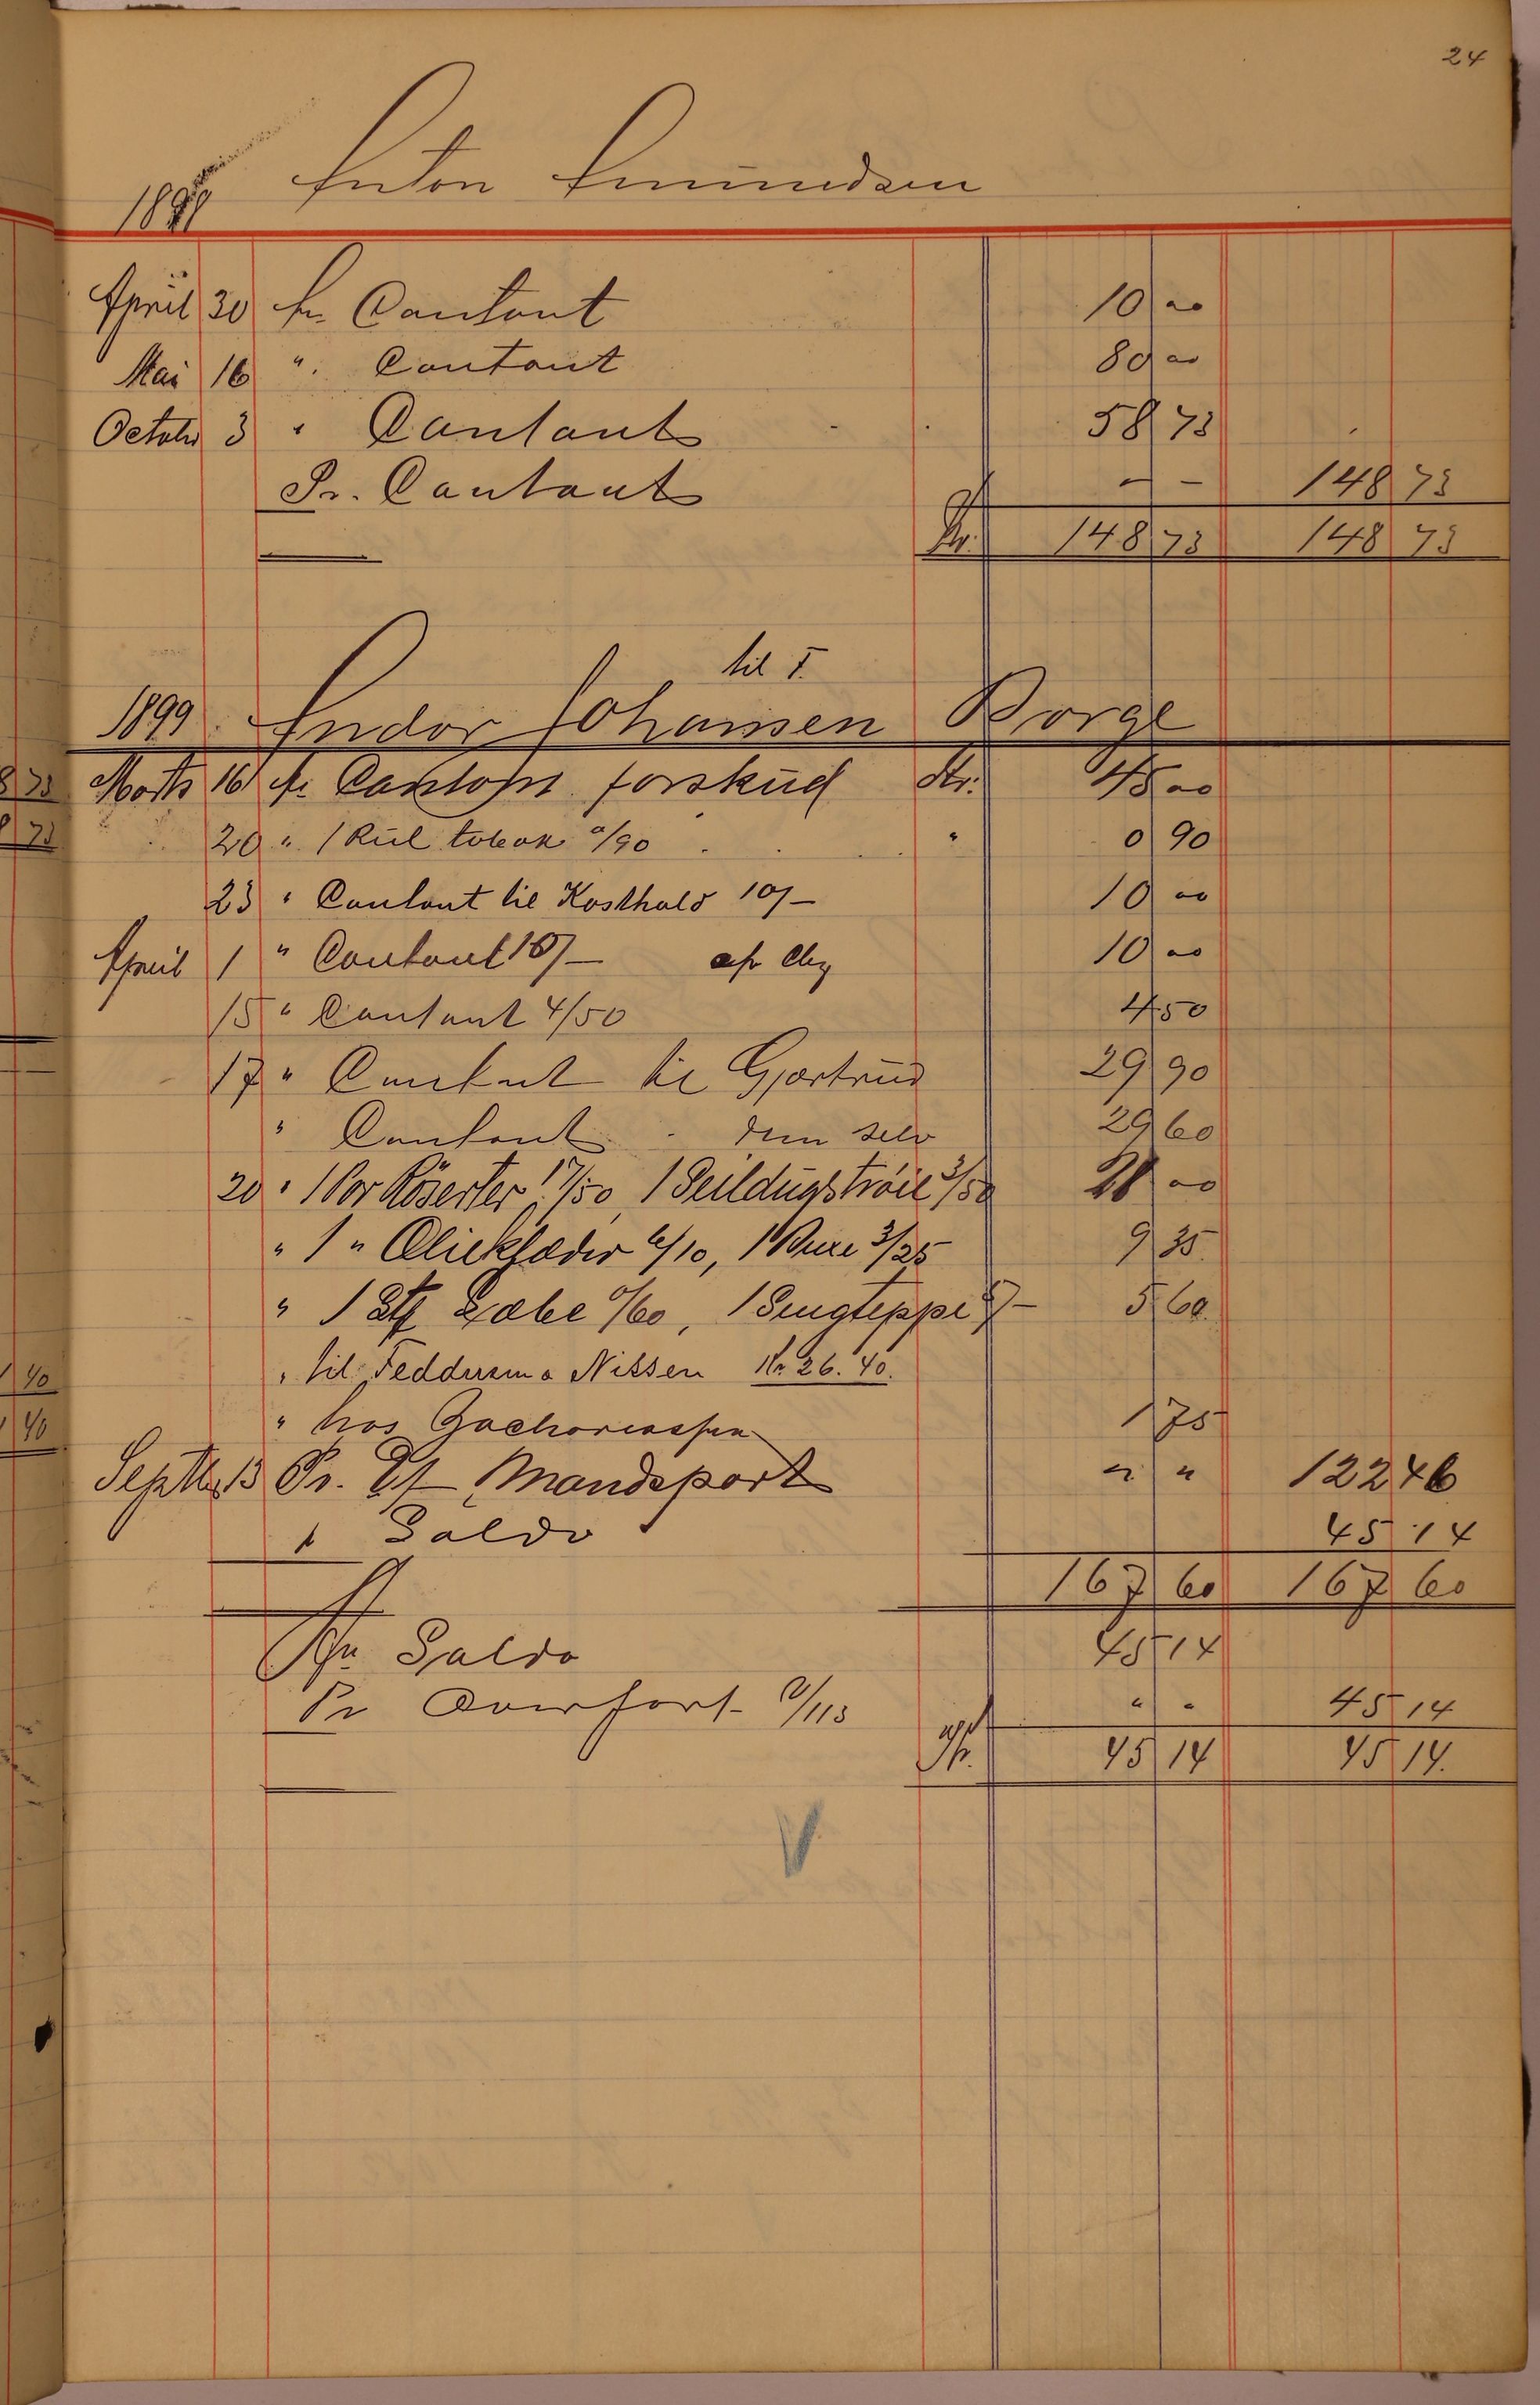 24
Anton Amundsen
1898
April 30 An Contant 10 00
Mai 16 " Contant 80 00
Octobr 3 " Contant 58 73
Pr. Contant — — 148 73
Kr. 148 73 148 73
til I.
1899 Andor Johansen Borge
Marts 16 An Contant forskud Kr. 45 00
20 " 1 Rul tobak 0/90 " 0 90
23 " Contant til Kosthold 10/— 10 00
April 1 " Contant 10/— 10 00
15 " Contant 4/50 4 50
17 " Contant til Gjartrud 29 90
" Contant dem selv 29 60
20 " 1 Par Röserter 17/50, 1 Seildugströie 3/50 21 00
" 1 " Olieklæder 6/10, 1 Buxe 3/25 9 35
" 1 Stk Sæbe 0/60, 1 Sengteppe 5/— 5 60
" til Feddersen & Nissen Kr. 26.40.
" hos Zachariassen 1 75
Septbr 13 Pr. Mandspart " " 122 46
" Saldo 45 14
167 60 167 60
An Saldo 45 14
Pr Overført 2/113 " " 45 14
Kr. 45 14 45 14.
8 73
8 73
40
40